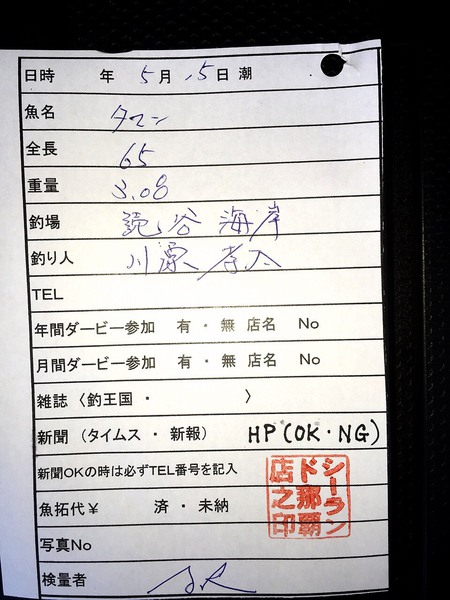 日時 年 5月 15日 潮
魚名 タマン
全長 65
重量 3.08
釣場 読谷 海岸
釣り人 川原
TEL
年間ダービー参加 有・無 店名 No
月間ダービー参加 有・無 店名 No
雑誌〈釣王国・ 〉
新聞（タイムス・新報） HP(OK・NG)
新聞OKの時は必ずTEL番号を記入
魚拓代￥ 済・未納
写真No
検量者
シーラン
ド那覇
店之印